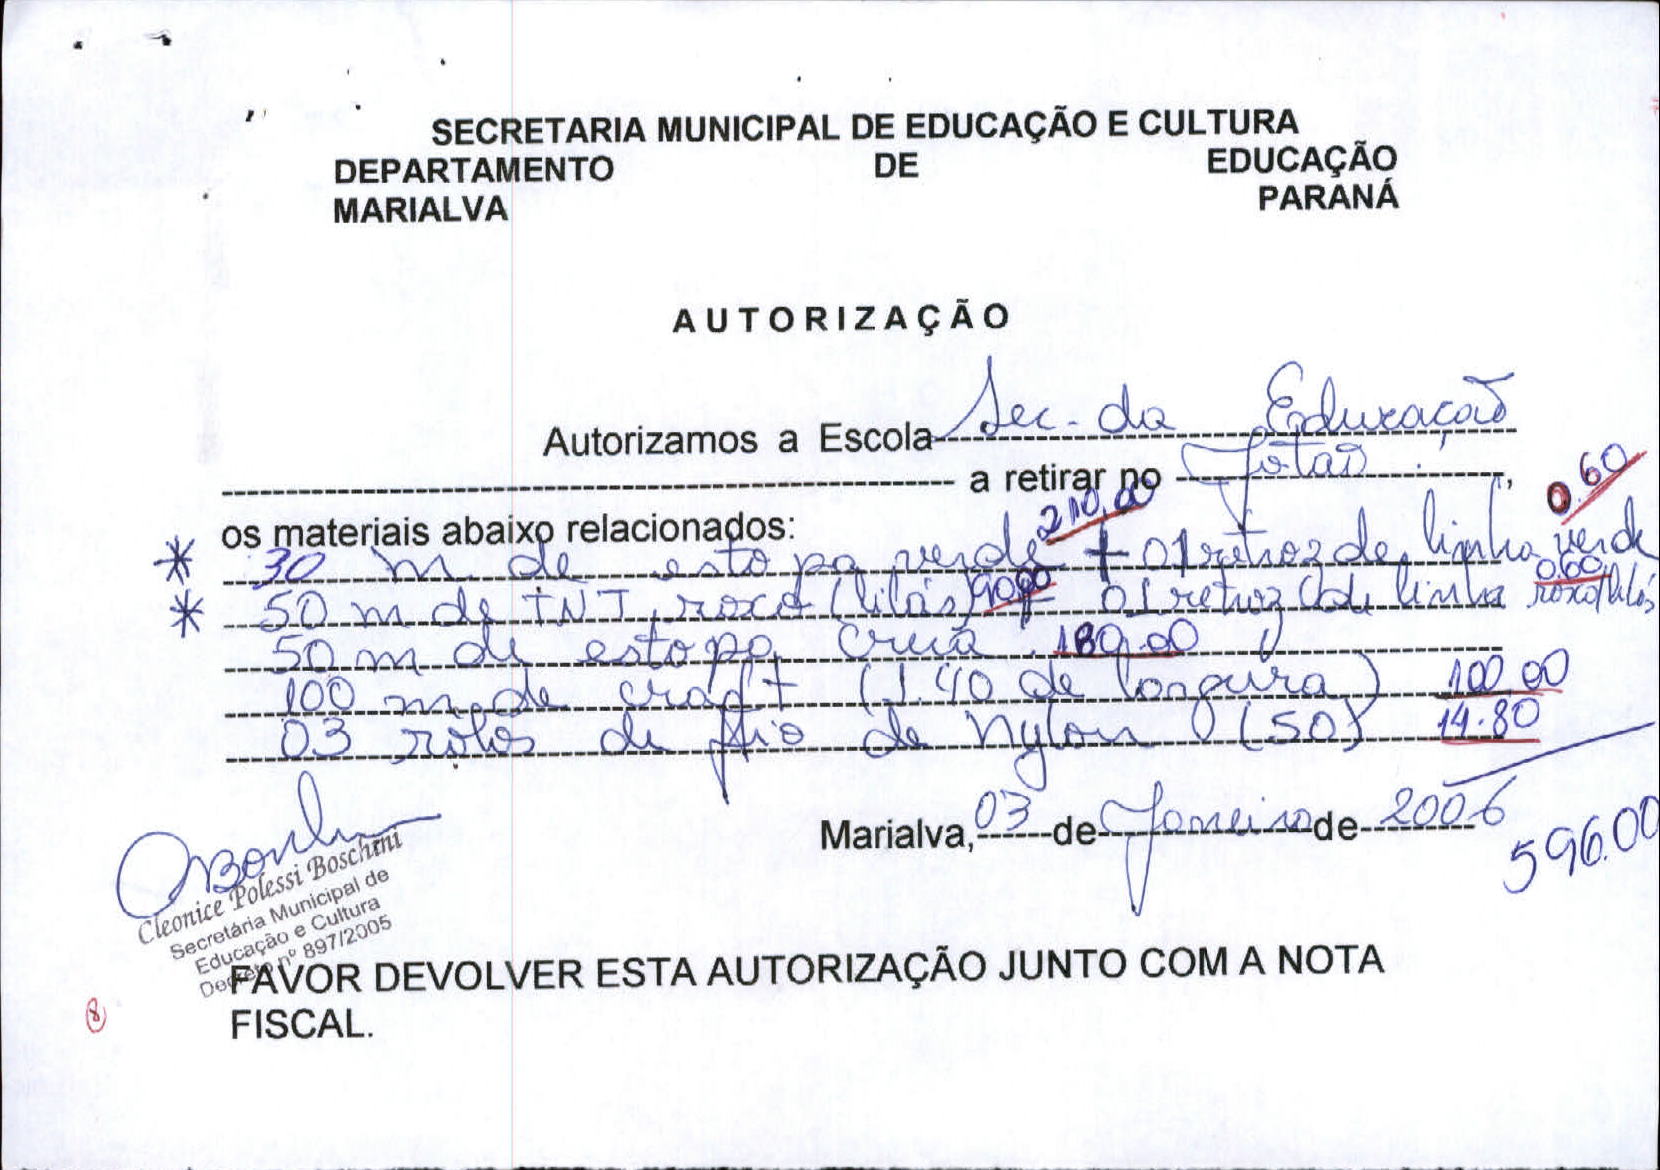 SECRETARIA MUNICIPAL DE EDUCAÇÃO E CULTURA
DEPARTAMENTO DE EDUCAÇÃO
MARIALVA PARANÁ
AUTORIZAÇÃO
Autorizamos a Escola Sec. da Educação
a retirar no Jotão,
0.60
os materiais abaixo relacionados: 210,00
* 30 m de estopa verde + 01 retroz de linha verde
* 50 m de TNT roxo (lilás) 90,00 + 01 retroz de linha roxo/lilás 0,60
50 m de estopa crua 180.00
100 m de craft (1.40 de largura) 100.00
03 rolos de fio de Nylon (50) 14.80
Marialva, 03 de Janeiro de 2006
596.00
Cleonice Polessi Boschini
Secretária Municipal de
Educação e Cultura
Decreto nº 897/2005
FAVOR DEVOLVER ESTA AUTORIZAÇÃO JUNTO COM A NOTA
FISCAL.
8